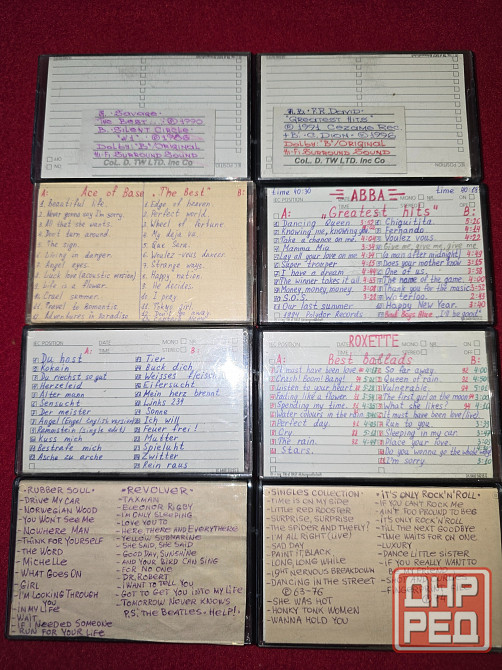 A. SAVAGE
THE BEST ©1990
B. SILENT CIRCLE
©1986
DOLBY "B" ORIGINAL
HI-FI SURROUND SOUND
COL. D. TW LTD. INC CO
F.R. DAVID
"GREATEST HITS"
© 1991 CEZAME REC.
C. DION ©1996
DOLBY "B"/ORIGINAL
HI-FI SURROUND SOUND
COL. D. TW LTD. INC CO
A: Ace of Base „The Best" B:
1. Beautiful life.
2. Never gonna say I'm sorry.
3. All that she wants.
4. Don't turn around.
5. The sign.
6. Living in danger.
7. Angel eyes.
8. Lucky love (acoustic version)
9. Life is a flower.
10. Cruel summer.
11. Travel to Romantis
12. Adventures in paradise
1. Edge of heaven.
2. Perfect world.
3. Wheel of fortune
4. My deja vu.
5. Que Sera.
6. Voulez-vous danser
7. Strange ways.
8. Happy nation.
9. He decides.
10. I pray.
11. Tokyo girl.
12. Don't go away
time 40:30
ABBA
A: „Greatest hits" B:
Dancing Queen
Knowing me, knowing you
Take a chance on me. 4:04
Mamma Mia
Lay all your love on me 4:34
Super trouper. 4:15
I have a dream. 4:44
The winner takes it all
Money, money, money
S.O.S.
Our last summer
1994 Polydor Records
Chiquitita
Fernando 4:14
Voulez vous. 4:22
Gimme, gimme, gimme
(a man after midnight)
Does your mother know
One of us.
The name of the game. 4:00
Thank you for the music 3:52
Waterloo.
Happy New Year.
Bad Boys Blue „I'll be good"
A: B:
Du hast
Kokain
Du riechst so gut
Herzeleid
Alter mann
Sehnsucht
Der meister
Angel (Engel English version)
Rammstein (single edit)
Kuss mich
Bestrafe mich
Asche zu asche
Tier
Buck dich
Weisses fleisch
Eifersucht
Mein herz brennt
Links 234
Sonne
Ich will
Feuer frei!
Mutter
Spieluhr
Zwitter
Rein raus
ROXETTE
A: Best ballads B:
It must have been love
Crash! Boom! Bang!
Listen to your heart
Fading like a flower.
Spending my time.
Watercolours in the rain
Perfect day.
Cry.
The rain.
So far away.
Queen of rain.
Vulnerable.
The first girl on the moon
What she likes!
It must have been love (live)
Run to you
Sleeping in my car
Place your love.
Stars.
Do you wanna go the whole way
I'm sorry.
•RUBBER SOUL•
-DRIVE MY CAR
-NORWEGIAN WOOD
-YOU WON'T SEE ME
-NOWHERE MAN
-THINK FOR YOURSELF
-THE WORD
-MICHELLE
-WHAT GOES ON
-GIRL
-I'M LOOKING THROUGH YOU
-IN MY LIFE
-WAIT
-IF I NEEDED SOMEONE
-RUN FOR YOUR LIFE
•REVOLVER•
-TAXMAN
-ELEONOR RIGBY
-I'M ONLY SLEEPING
-LOVE YOU TO
-HERE THERE AND EVERYWHERE
-YELLOW SUBMARINE
-SHE SAID, SHE SAID
-GOOD DAY, SUNSHINE
-AND YOUR BIRD CAN SING
-FOR NO ONE
-DR. ROBERT
-I WANT TO TELL YOU
-GOT TO GET YOU INTO MY LIFE
-TOMORROW NEVER KNOWS
P.S. THE BEATLES - HELP!
•SINGLES COLLECTION•
-TIME IS ON MY SIDE
-LITTLE RED ROOSTER
-SURPRISE, SURPRISE
-THE SPIDER AND THE FLY
-I'M ALL RIGHT (LIVE)
-SAD DAY
-PAINT IT, BLACK
-LONG, LONG WHILE
-19TH NERVOUS BREAKDOWN
-DANCING IN THE STREET
© 63-76
-SHE WAS HOT
-HONKY TONK WOMEN
-WANNA HOLD YOU
•IT'S ONLY ROCK'N'ROLL•
-IF YOU CAN'T ROCK ME
-AIN'T TOO PROUD TO BEG
-IT'S ONLY ROCK'N'ROLL
-TILL THE NEXT GOODBYE
-TIME WAITS FOR NO ONE
-LUXURY
-DANCE LITTLE SISTER
-IF YOU REALLY WANT TO
ЦНР
РЕД